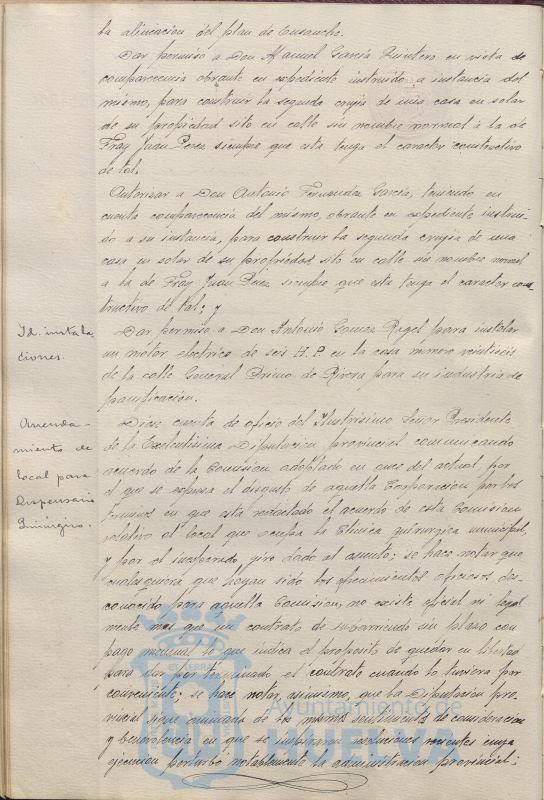 la alineacion del plan de Ensanche.
Dar permiso a Don Manuel Garcia Quintero en vista de
comparecencia obrante en expediente instruido a instancia del
mismo, para construir la segunda crujia de una casa en solar
de su propiedad sito en calle sin nombre normal a la de
Fray Juan Perez siempre que esta tenga el caracter constructivo
de tal.
Autorizar a Don Antonio Fernandez Garcia, teniendo en
cuenta comparecencia del mismo, obrante en expediente instrui-
do a su instancia, para construir la segunda crujia de una
casa en solar de su propiedad sito en calle sin nombre normal
a la de Fray Juan Perez siempre que esta tenga el caracter cons-
tructivo de tal; y
Id. instala-
ciones.
Dar permiso a Don Antonio Gomez Rogel para instalar
un motor electrico de seis H.P. en la casa número veintiseis
de la calle General Primo de Rivera para su industria de
panificacion.
Arrenda-
miento de
local para
Dispensario
Quirúrgico.
Diose cuenta de oficio del Ilustrisimo Señor Presidente
de la Excelentisima Diputacion provincial comunicando
acuerdo de la Comision adoptado en once del actual, por
el que se expresa el disgusto de aquella Corporacion por los
terminos en que está redactado el acuerdo de esta Comision
relativo al local que ocupa la Clinica quirurgica municipal,
y por el inesperado giro dado al asunto; se hace notar que
cualesquiera que hayan sido los ofrecimientos oficiosos, des-
conocido para aquella Comision, no existe oficial ni legal
mente mas que un contrato de subarriendo sin plazo con
pago mensual lo que indica el proposito de quedar en libertad
para dar por terminado el contrato cuando lo tuviera por
conveniente; se hace notar, asimismo, que la Diputacion pro-
vincial sigue animada de los mismos sentimientos de consideracion
y benevolencia en que se inspiraron resoluciones recientes cuya
ejecucion perturbó notablemente la administracion provincial;
Ayuntamiento de
HUELVA